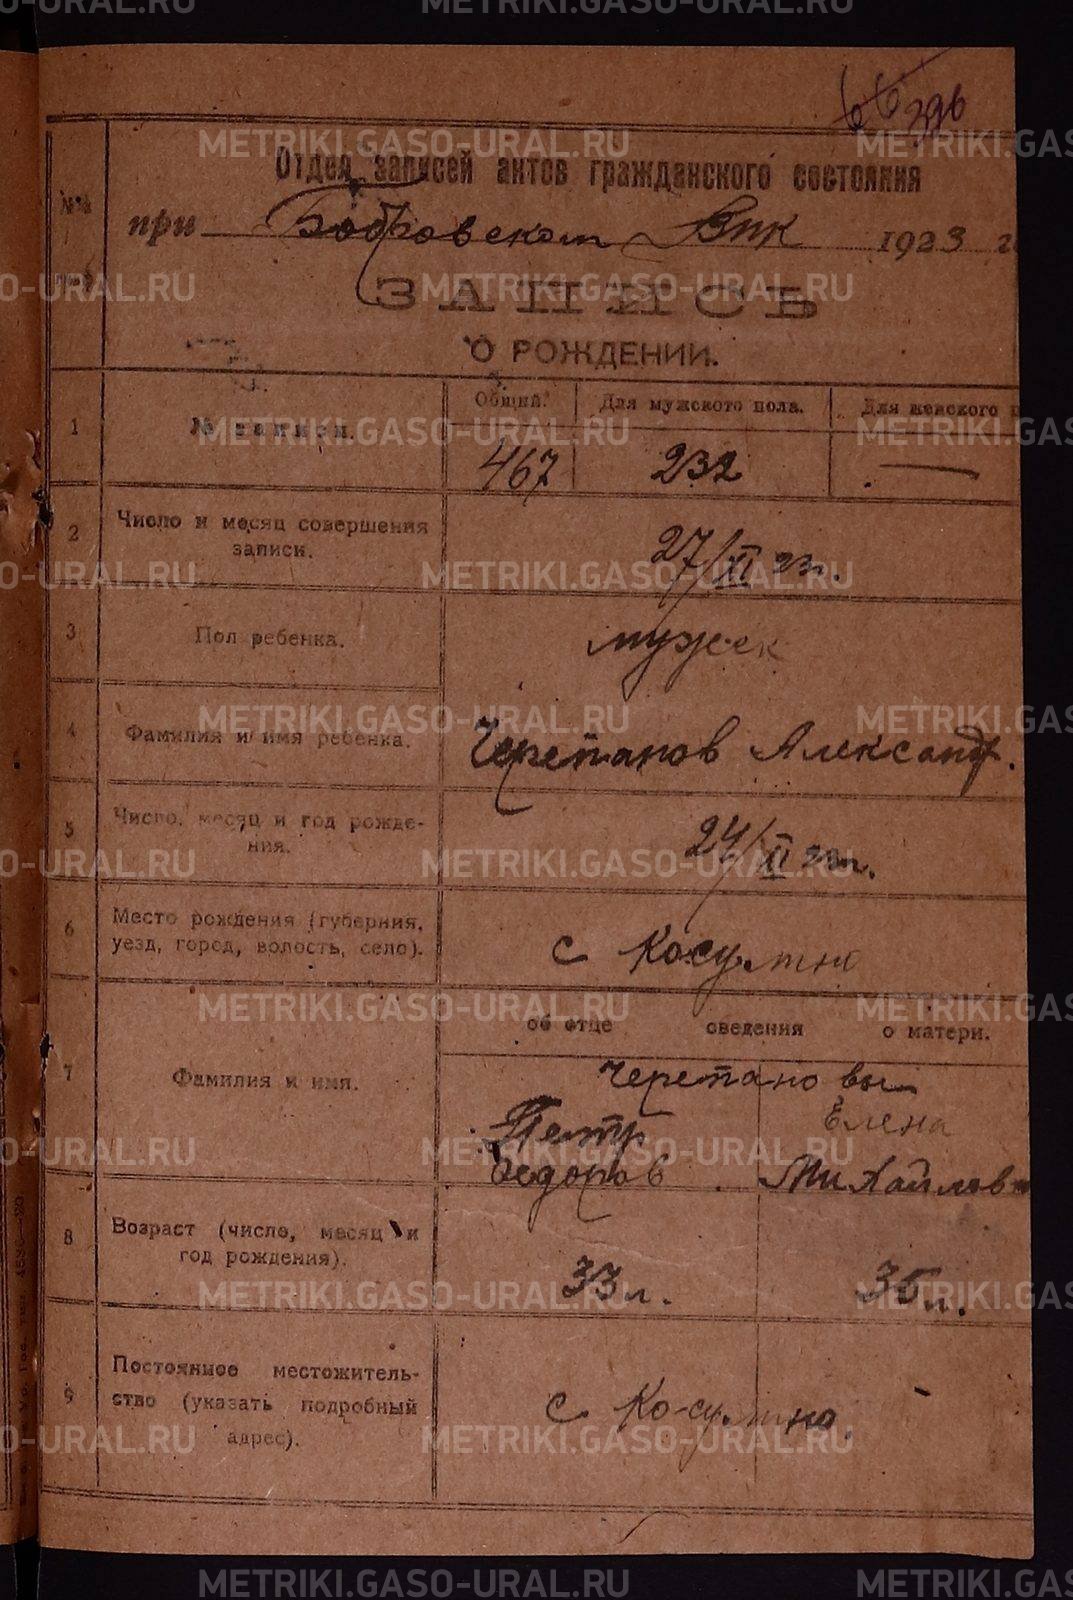 66 396
Отдел записей актов гражданского состояния
при Бобровском Вик 1923 г
ЗАПИСЬ
О РОЖДЕНИИ.
1 № записи. Общий. Для мужского пола. Для женского п
467 232 —
2 Число и месяц совершения записи. 27/XI 23г.
3 Пол ребенка. мужск
4 Фамилия и имя ребенка. Черепанов Александр.
5 Число, месяц и год рожде-
ния. 24/XI 23г.
6 Место рождения (губерния,
уезд, город, волость, село). с Косулино
об отце сведения о матери.
7 Фамилия и имя. Черепановы
Петр Елена
Федоров Михайлов
8 Возраст (число, месяц и
год рождения). 33 л. 35 л.
9 Постоянное местожитель-
ство (указать подробный
адрес). с Косулино.
METRIKI.GASO-URAL.RU